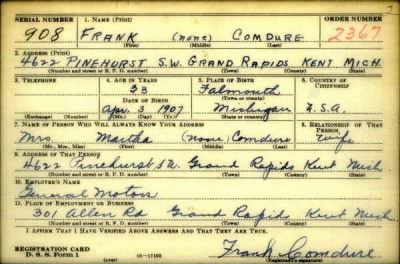 SERIAL NUMBER 1. NAME (Print) ORDER NUMBER
908 FRANK (none) COMDURE 2367
(First) (Middle) (Last)
2. ADDRESS (Print)
4622 PINEHURST S.W. GRAND RAPIDS, KENT MICH.
(Number and street or R. F. D. number) (Town) (County) (State)
3. TELEPHONE 4. AGE IN YEARS 5. PLACE OF BIRTH 6. COUNTRY OF CITIZENSHIP
33 Falmouth
DATE OF BIRTH (Town or county)
Apr. 3 1907 Michigan U.S.A.
(Exchange) (Number) (Mo.) (Day) (Yr.) (State or country)
7. NAME OF PERSON WHO WILL ALWAYS KNOW YOUR ADDRESS 8. RELATIONSHIP OF THAT PERSON
Mrs. Martha (None) Comdure Wife
(Mr., Mrs., Miss) (First) (Middle) (Last)
9. ADDRESS OF THAT PERSON
4622 Pinehurst S.W. Grand Rapids Kent Mich.
(Number and street or R. F. D. number) (Town) (County) (State)
10. EMPLOYER'S NAME
General Motors
11. PLACE OF EMPLOYMENT OR BUSINESS
301 Allen Rd Grand Rapids Kent Mich
(Number and street or R. F. D. number) (Town) (County) (State)
I AFFIRM THAT I HAVE VERIFIED ABOVE ANSWERS AND THAT THEY ARE TRUE.
REGISTRATION CARD
D. S. S. Form 1 16-17105 Frank Comdure
(Registrant's signature)